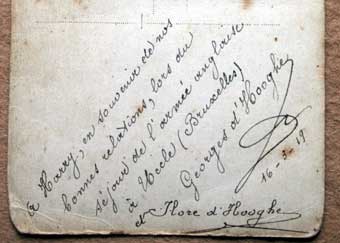 à Harry, en souvenir de nos
bonnes relations, lors du
séjour de l'armée anglaise
à Uccle (Bruxelles)
Georges d'Hooghe
16-3-19
et Flore d'Hooghe